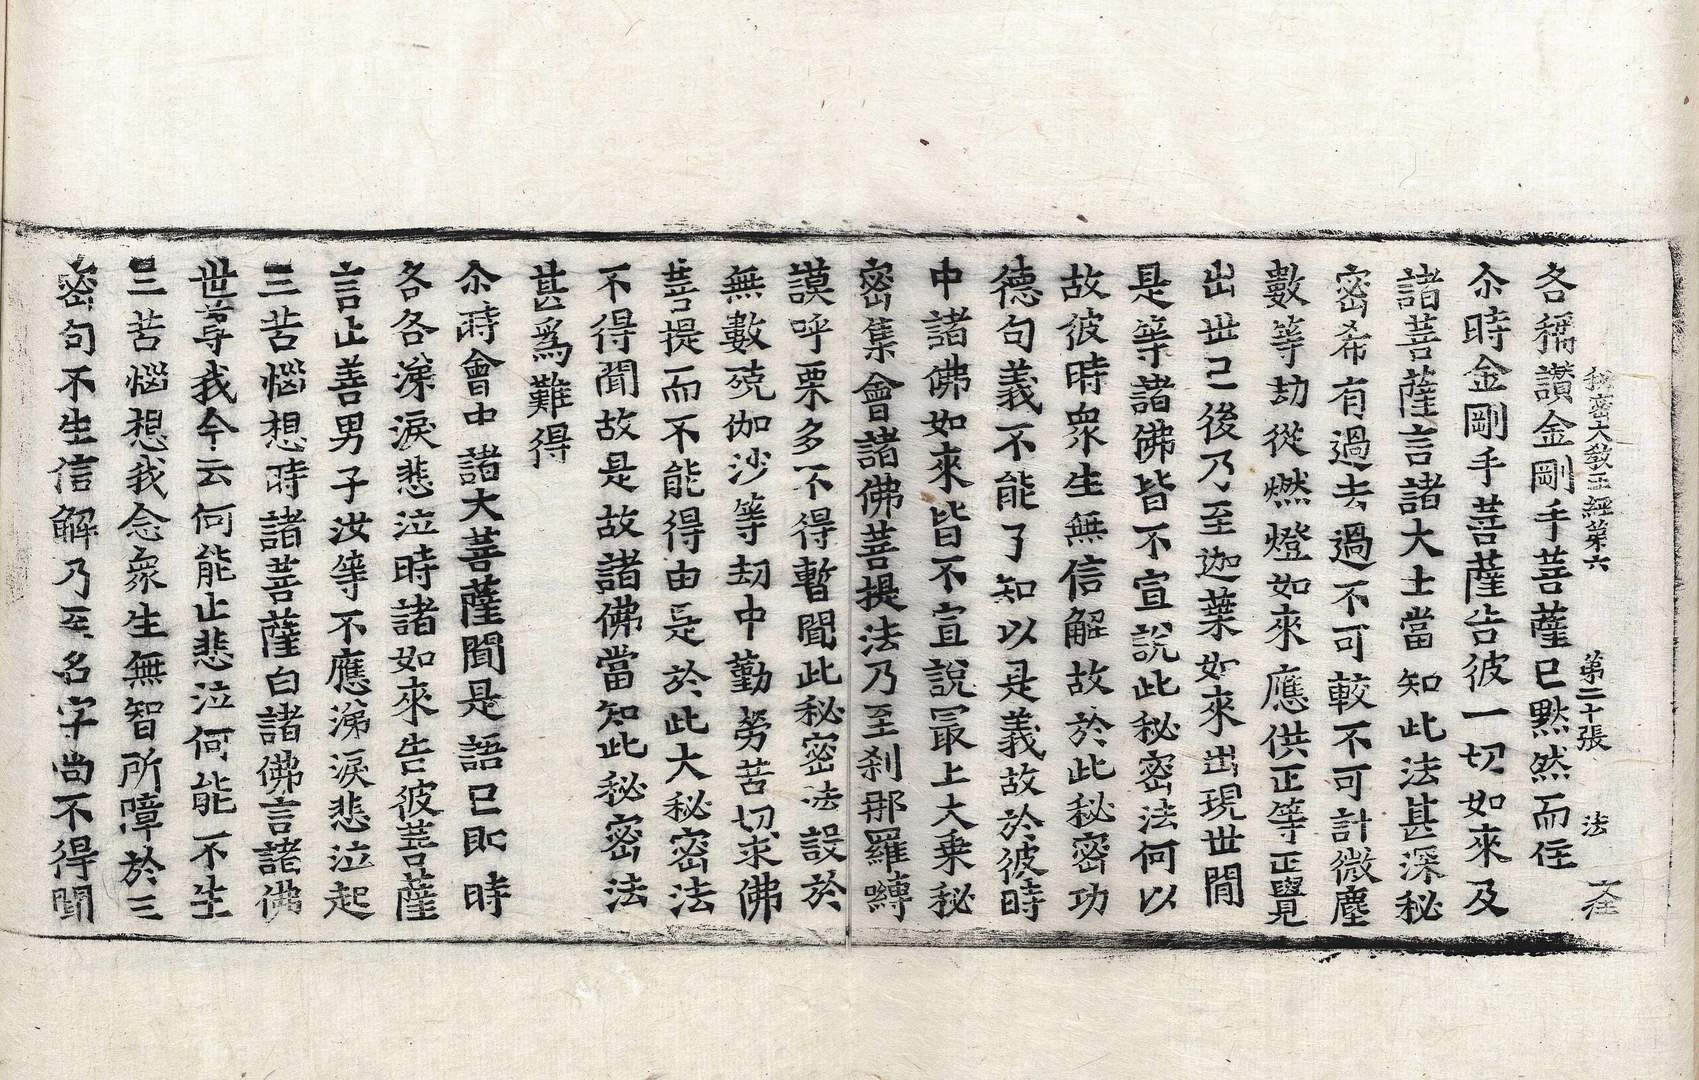 秘密大教王經第六 第二十張 法
各稱讃金剛手菩薩已默然而住
尒時金剛手菩薩告彼一切如來及
諸菩薩言諸大士當知此法甚深秘
密希有過去過不可較不可計微塵
數等劫從燃燈如來應供正等正覺
出世已後乃至迦葉如來出現世間
是等諸佛皆不宣說此秘密法何以
故彼時衆生無信解故於此秘密功
德句義不能了知以是義故於彼時
中諸佛如來皆不宣說冣上大乗秘
密集會諸佛菩提法乃至刹那羅嚩
謨呼栗多不得暫聞此秘密法設於
無數殑伽沙等劫中勤勞苦切求佛
菩提而不能得由是於此大秘密法
不得聞故是故諸佛當知此秘密法
甚爲難得
尒時會中諸大菩薩聞是語已即時
各各涕淚悲泣時諸如來告彼菩薩
言止善男子汝等不應涕淚悲泣起
三苦惱想時諸菩薩白諸佛言諸佛
世尊我今云何能止悲泣何能不生
三苦惱想我念衆生無智所障於三
密句不生信解乃至名字尚不得聞